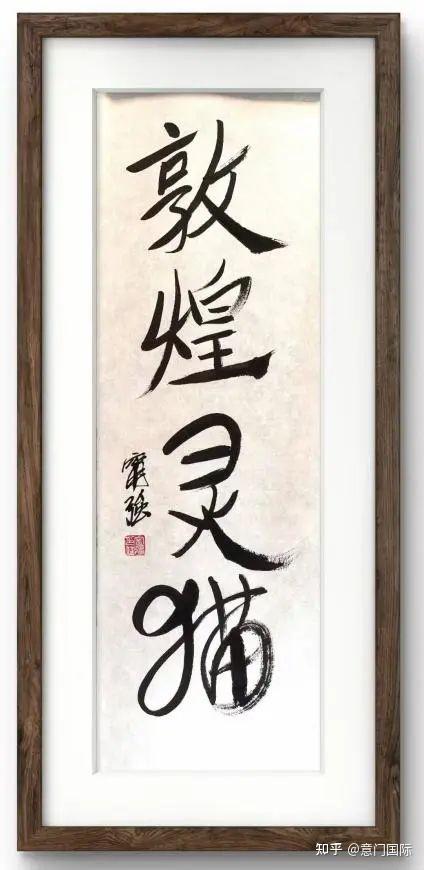 敦煌灵猫
甯强
知乎 @意门国际